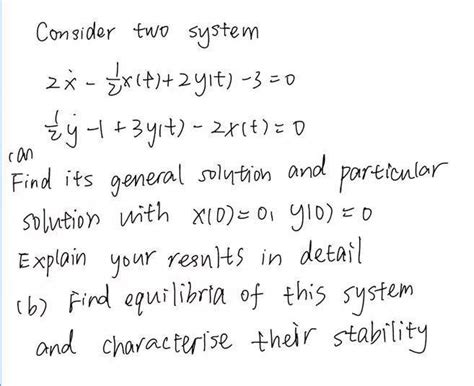 Consider two system
2ẋ - ½x(t)+2y(t) -3=0
½ẏ -1 +3y(t) - 2x(t)=0
(an
Find its general solution and particular
solution with x(0)=0, y(0)=0
Explain your results in detail
(b) Find equilibria of this system
and characterise their stability